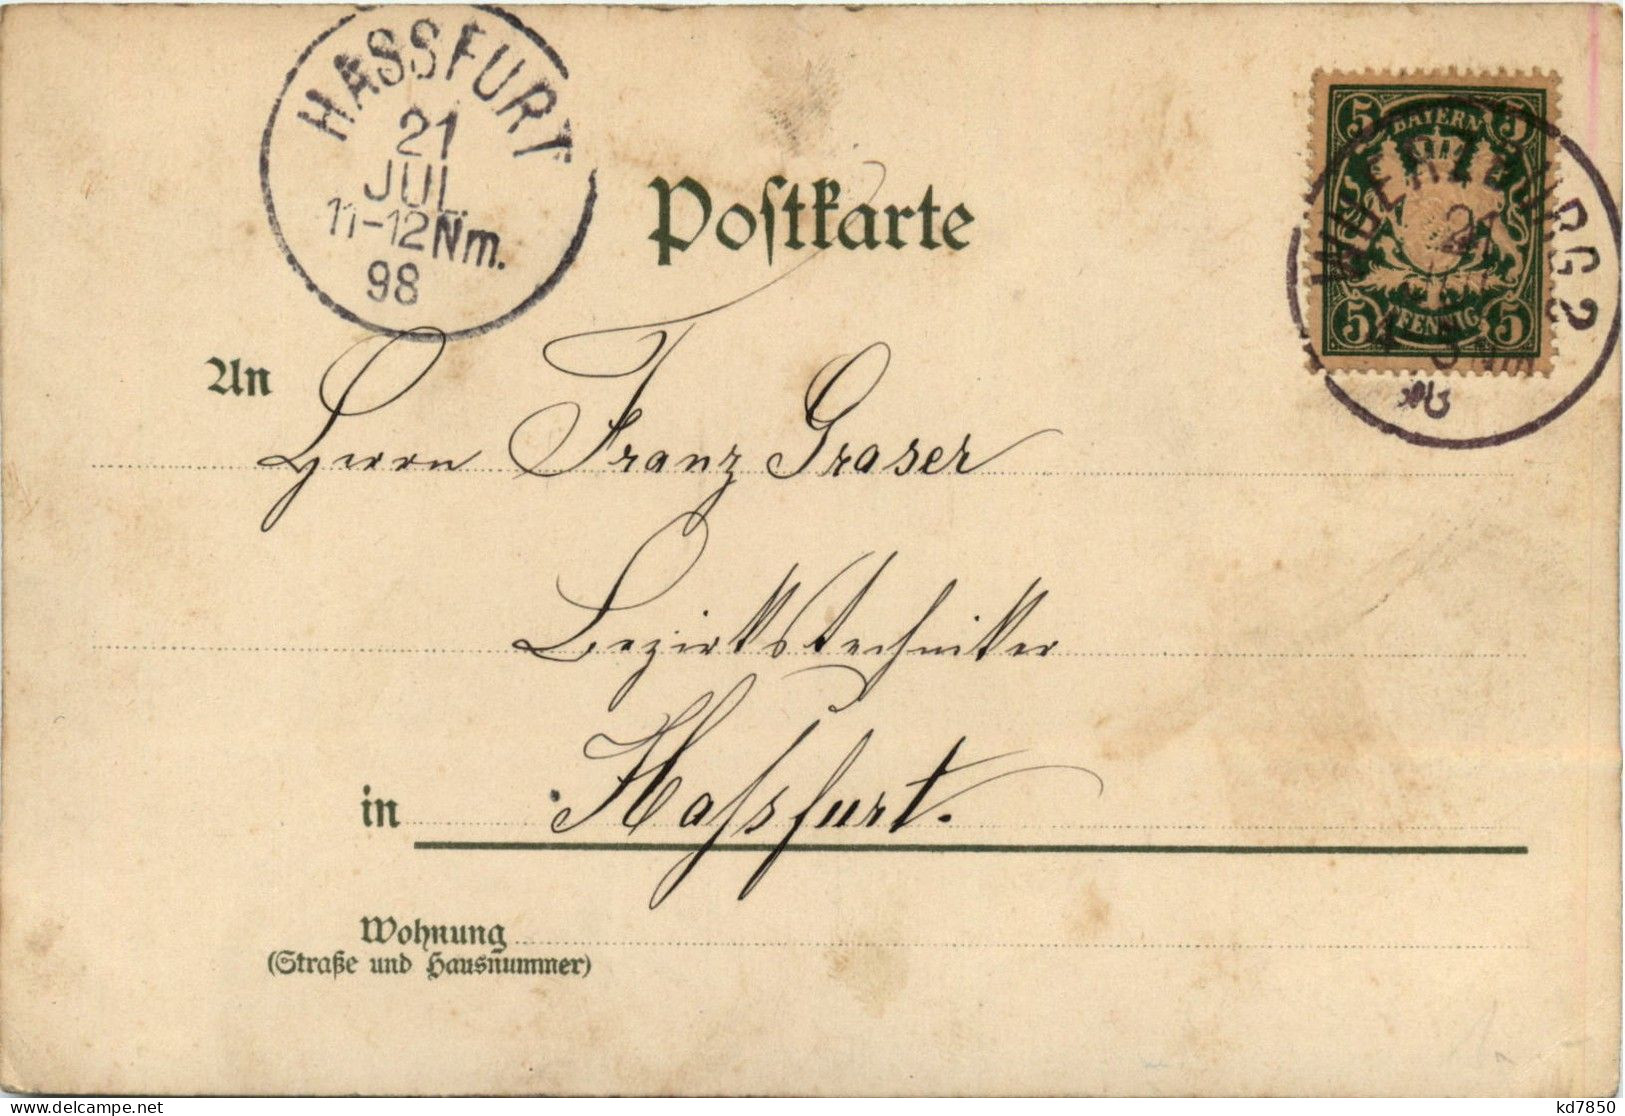 HASSFURT
21
JUL.
11-12Nm.
98
Postkarte
5 BAYERN 5
5 PFENNIG 5
WUERZBURG 2
21
An
Herrn Franz Graser
Bezirkstechniker
in Hassfurt.
Wohnung
(Straße und Hausnummer)
kd7850